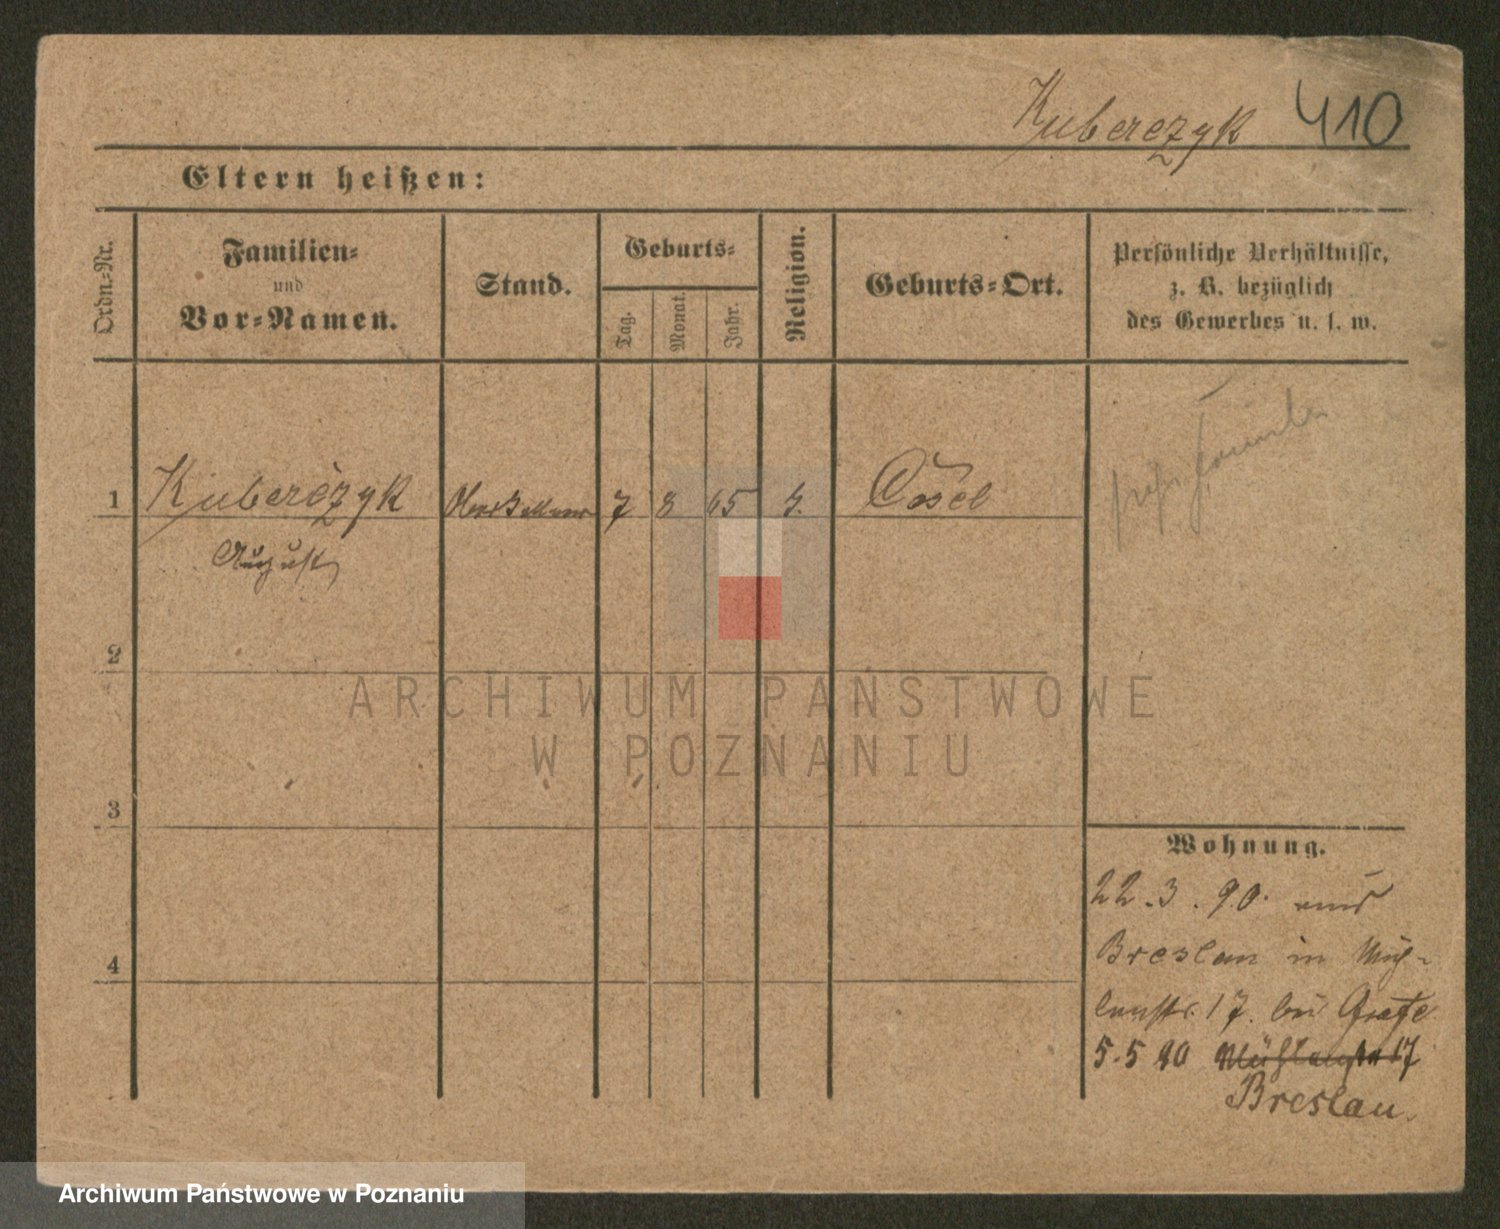 Kuberczyk 410
Eltern heißen:
Ordn.-Nr.
Familien-
und
Vor-Namen.
Stand.
Geburts-
Tag.
Monat.
Jahr.
Religion.
Geburts-Ort.
Persönliche Verhältnisse,
z. B. bezüglich
des Gewerbes u. s. w.
1 Kuberczyk 7 8 65 Cosel
August
2
3
4
Wohnung.
22.3.90. aus
Breslau in Müh-
lenstr. 17. bei Graefe
5.5 90 Mühlenstr 17
Breslau.
ARCHIWUM PAŃSTWOWE
W POZNANIU
Archiwum Państwowe w Poznaniu